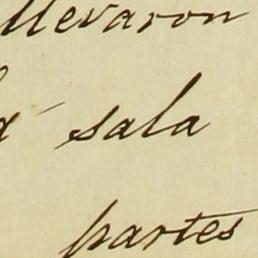 llevaron
sala
partes